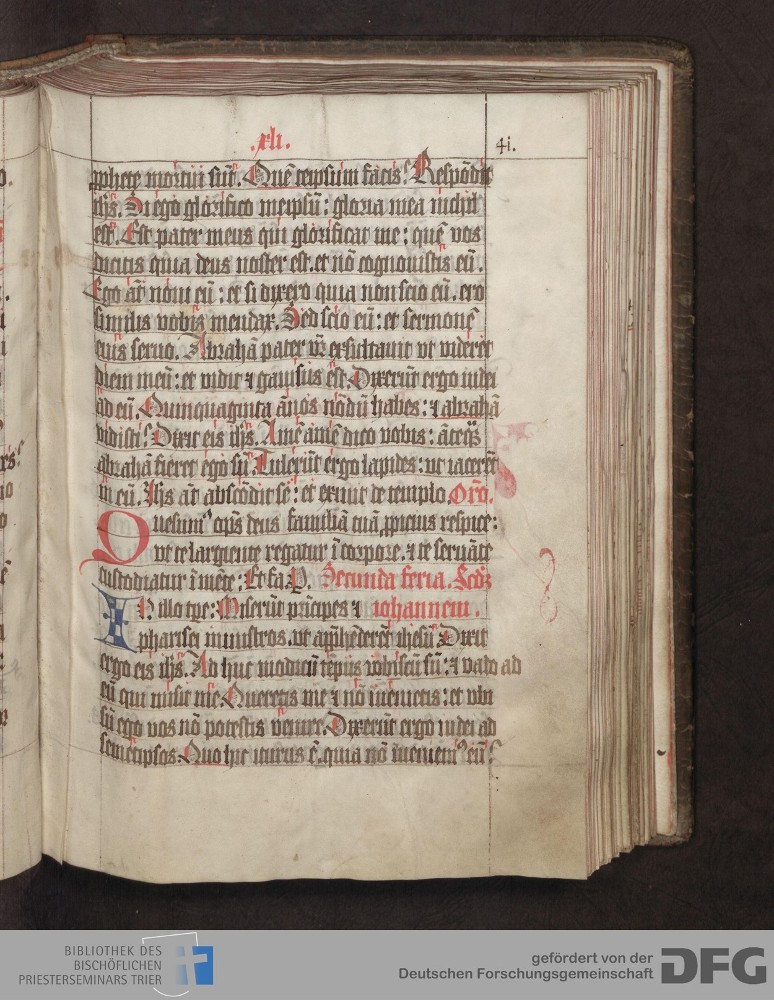 .xli.
4i.
ꝓphete mortui sūt. Quē teipsum facis? Respōdit
ihs̄. Si ego glorifico meipsū: gloria mea nichil
est. Est pater meus qui glorificat me: quē vos
dicitis quia deus noster est. et nō cognouistis eū.
Ego āt noui eū: et si dixero quia non scio eū. ero
similis vobis mendax. Sed scio eū: et sermonē
eius seruo. Abrahā pater vr̄ exsultauit vt videret
diem meū: et vidit ⁊ gauisus ē̄st. Dixerūt ergo iudei
ad eū. Quinquaginta ānos nōdū habes: ⁊ abrahā
vidisti? Dixit eis ihs̄. Amē amē dico vobis: āteqꝫ
abrahā fieret ego sū. Tulerūt ergo lapides: vt iacerēt
in eū. Ihs āt abscōdit se: et exiuit de templo. Orō.
Quesum⁹ op̄s deus familiā tuā ꝓpicius respice:
vt te largiente regatur ī corpore. ⁊ te seruāte
custodiatur ī mēte: Et fa. P. Secunda feria. Scdꝫ
IN illo tpe: Miserūt prīcipes ⁊ iohannem.
pharisei ministros. vt app̄hēderēt ihesū. Dixit
ergo eis ihs̄. Ad huc modicū tēpus vobiscū sū: ⁊ vado ad
eū qui misit me. Queretis me ⁊ nō īuenietis: et vbi
sū ego vos nō potestis venire. Dixerūt ergo iudei ad
semetipsos. Quo hic iturus ē. quia nō inueniem⁹ eū?
BIBLIOTHEK DES
BISCHÖFLICHEN
PRIESTERSEMINARS TRIER
gefördert von der
Deutschen Forschungsgemeinschaft
DFG